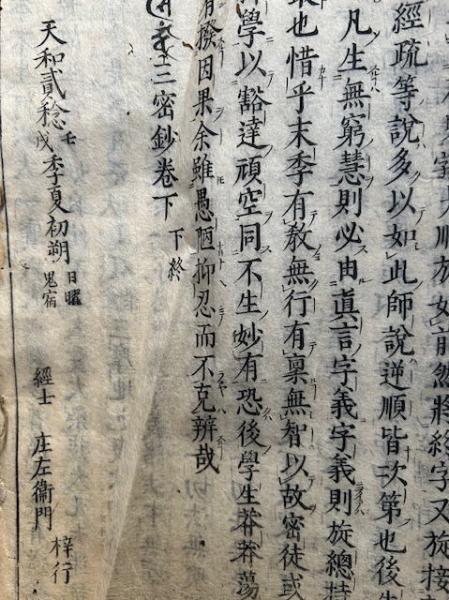 順於如前然將終字又旋接
經疏等說多以如此師說逆順皆次第也後
凡生無窮慧則必由眞言字義字義則旋總持
也惜乎末季有教無行有稟無智以故密徒或
學以豁達頑空同不生妙有恐後學生莽莽蕩
撥因果余雖愚陋抑忍而不克辨哉
三密鈔卷下 下終
天和貳稔壬戌季夏初朔 日曜 鬼宿
經士 庄左衞門 梓行